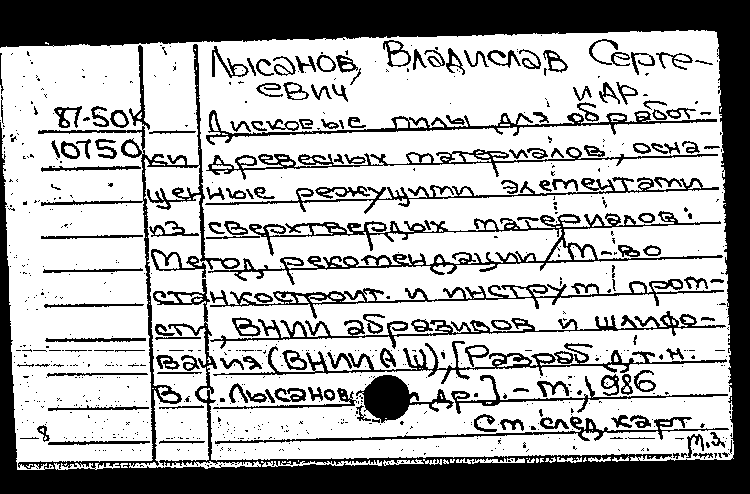 Лысанов, Владислав Серге-
евич и др.
87-50К Дисковые пилы для обработ-
10750 ки древесных материалов, осна-
щенные режущими элементами
из сверхтвердых материалов:
Метод. рекомендации / М-во
станкостроит. и инструм. пром-
сти, ВНИИ абразивов и шлифо-
вания (ВНИИАШ); [Разраб. д.т.н.
В.С. Лысанов др.]. - М., 1986
См. след. карт.
8 м.з.